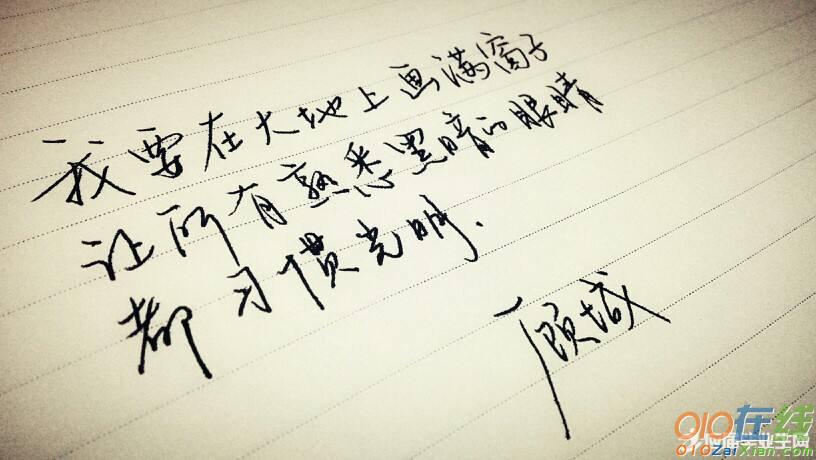 我要在大地上画满窗子
让所有熟悉黑暗的眼睛
都习惯光明.
顾城
010在线
010ZaiXian.com